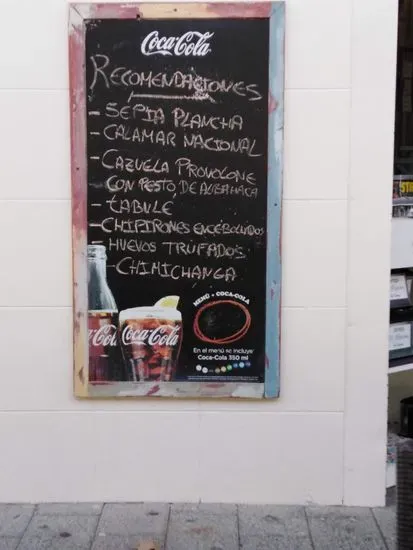 Coca-Cola
RECOMENDACIONES
- SEPIA PLANCHA
- CALAMAR NACIONAL
- CAZUELA PROVOLONE
CON PESTO, DE ALBAHACA
- TABULE
- CHIPIRONES ENCEBOLLADOS
- HUEVOS TRUFADOS
- CHIMICHANGA
MENÚ + COCA-COLA
Coca-Cola
En el menú se incluye
Coca-Cola 350 ml